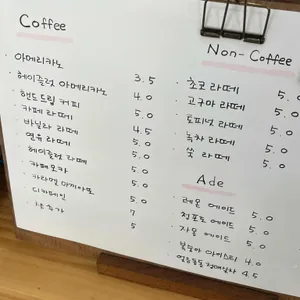 Coffee
· 아메리카노 3.5
· 헤이즐럿 아메리카노 4.0
· 핸드드립 커피 5.0
· 카페 라떼 4.5
· 바닐라 라떼 5.0
· 연유 라떼 5.0
· 헤이즐럿 라떼 5.0
· 카페모카 5.0
· 카라멜 마끼아또 5.0
· 디카페인 7
5
Non-Coffee
· 초코 라떼 5.0
· 고구마 라떼 5.0
· 토피넛 라떼 5.0
· 녹차 라떼 5.0
· 쑥 라떼 5.0
Ade
· 레몬 에이드 5.0
· 청포도 에이드 5.0
· 자몽 에이드 5.0
· 복숭아 아이스티 4.0
4.5